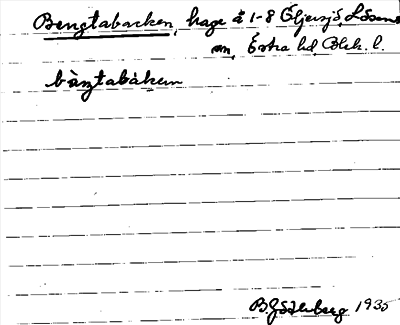 Bengtabacken, hage å 1-8 Öljersjö Lösens
sn, Östra hd, Blek. l.
bàŋtabáken
B. Göstenberg 1935